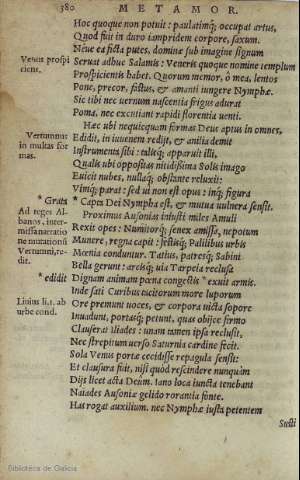 380 METAMOR.
Hoc quoque non potuit: paulatimq; occupat artus,
Quod fuit in duro iampridem corpore, saxum.
Neue ea ficta putes, dominæ sub imagine signum
Venus prospi
ciens.
Seruat adhuc Salamis: Veneris quoque nomine templum
Prospicientis habet. Quorum memor, ô mea, lentos
Pone, precor, fastus, & amanti iungere Nymphæ.
Sic tibi nec uernum nascentia frigus adurat
Poma, nec excutiant rapidi florentia uenti.
Hæc ubi nequicquam formas Deus aptus in omnes,
Vertumnus
in multas for
mas.
Edidit, in iuuenem redijt, & anilia demit
Instrumenta sibi: talisq; apparuit illi,
Qualis ubi oppositas nitidissima Solis imago
Euicit nubes, nullaq; obstante reluxit:
Vimq; parat: sed ui non est opus: inq; figura
* Grata
* Capta Dei Nympha est, & mutua uulnera sensit.
Ad reges Al-
banos, inter-
missa narratio
ne mutationis
Vertumni, re-
dit.
Proximus Ausonias iniusti miles Amuli
Rexit opes: Numitorq; senex amissa, nepotum
Munere, regna capit: festisq; Palilibus urbis
Mœnia conduntur. Tatius, patresq; Sabini
Bella gerunt: arcisq; uia Tarpeia reclusa
* edidit
Dignam animam pœna congestis * exuit armis.
Liuius li.1. ab
urbe cond.
Inde sati Curibus tacitorum more luporum
Ore premunt uoces, & corpora uicta sopore
Inuadunt, portasq; petunt, quas obijce firmo
Clauserat Iliades: unam tamen ipsa reclusit,
Nec strepitum uerso Saturnia cardine fecit.
Sola Venus portæ cecidisse repagula sensit:
Et clausura fuit, nisi quod rescindere nunquàm
Dijs licet acta Deum. Iano loca iuncta tenebant
Naiades Ausoniæ gelido rorantia fonte.
Has rogat auxilium. nec Nymphæ iusta petentem
Susti
Biblioteca de Galicia